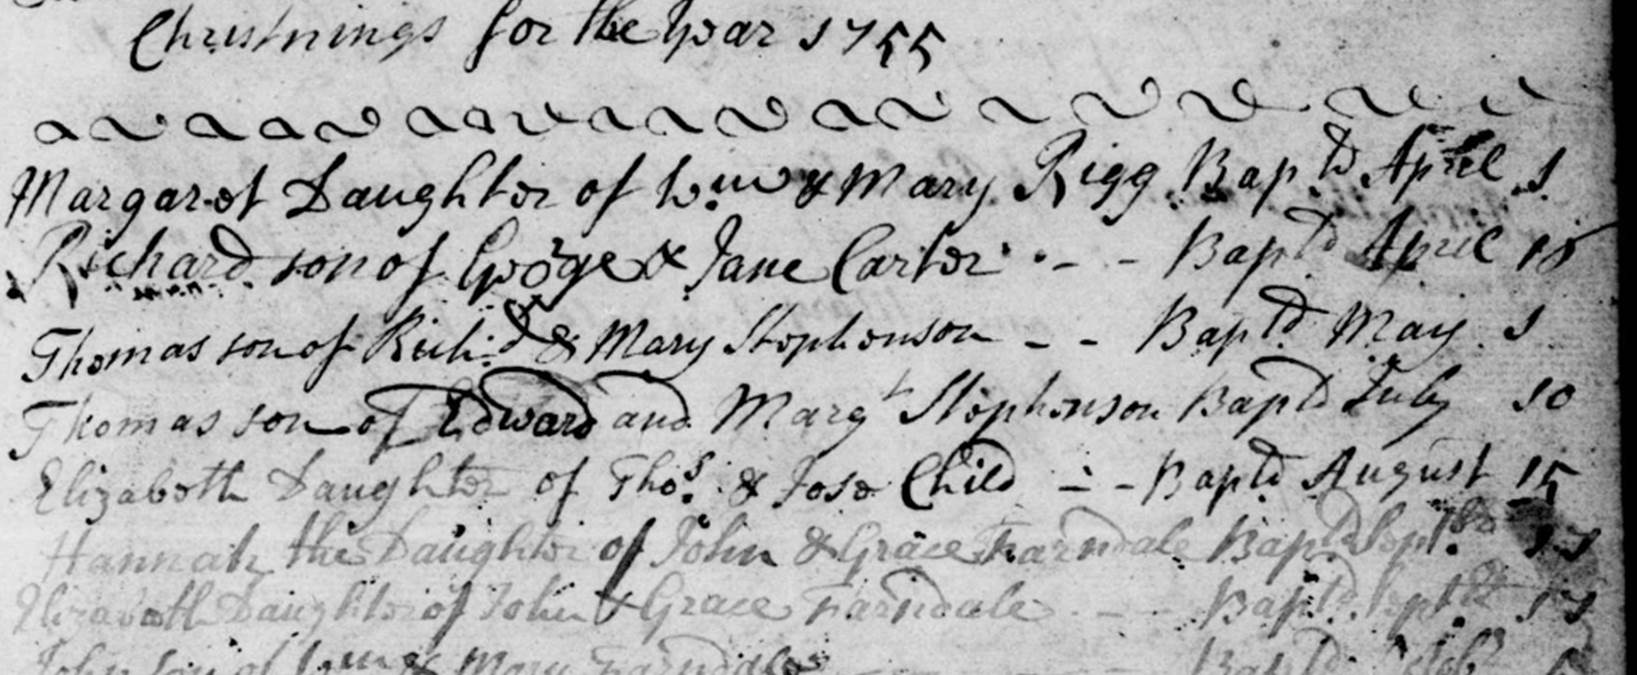 Christnings for the Year 1755
Margaret Daughter of Wm & Mary Rigg Baptd April 1
Richard son of George & Jane Carter - - Baptd April 18
Thomas son of Richd & Mary Stephenson - - Baptd May 1
Thomas son of Edward and Margt Stephenson Baptd July 10
Elizabeth Daughter of Thos & Jose Child - - Baptd August 15
Hannah the Daughter of John & Grace Farndale Baptd Septbr
Elizabeth Daughter of John & Grace Farndale - - Baptd Septbr
John son of Wm & Mary Farndale - - Baptd